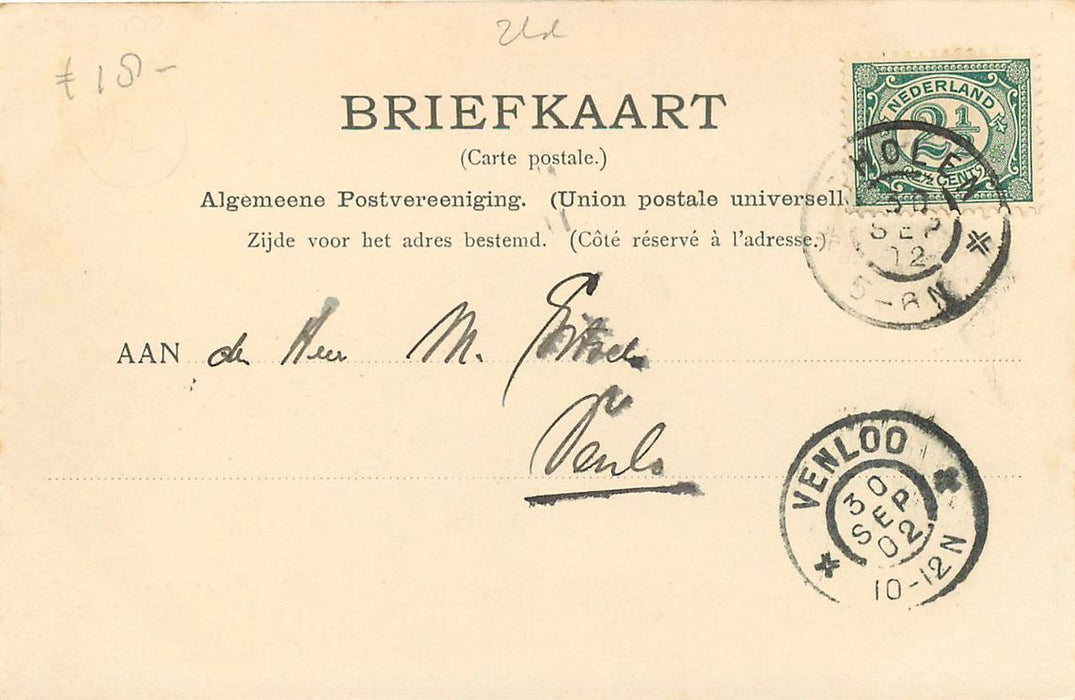 € 18-
BRIEFKAART
(Carte postale.)
Algemeene Postvereeniging. (Union postale universell
Zijde voor het adres bestemd. (Côté réservé à l'adresse.)
NEDERLAND
2½
2½ CENT
HOLEN
30
SEP
02
5-6N
AAN den Heer M.
Venlo
VENLOO
30
SEP
02
10-12N